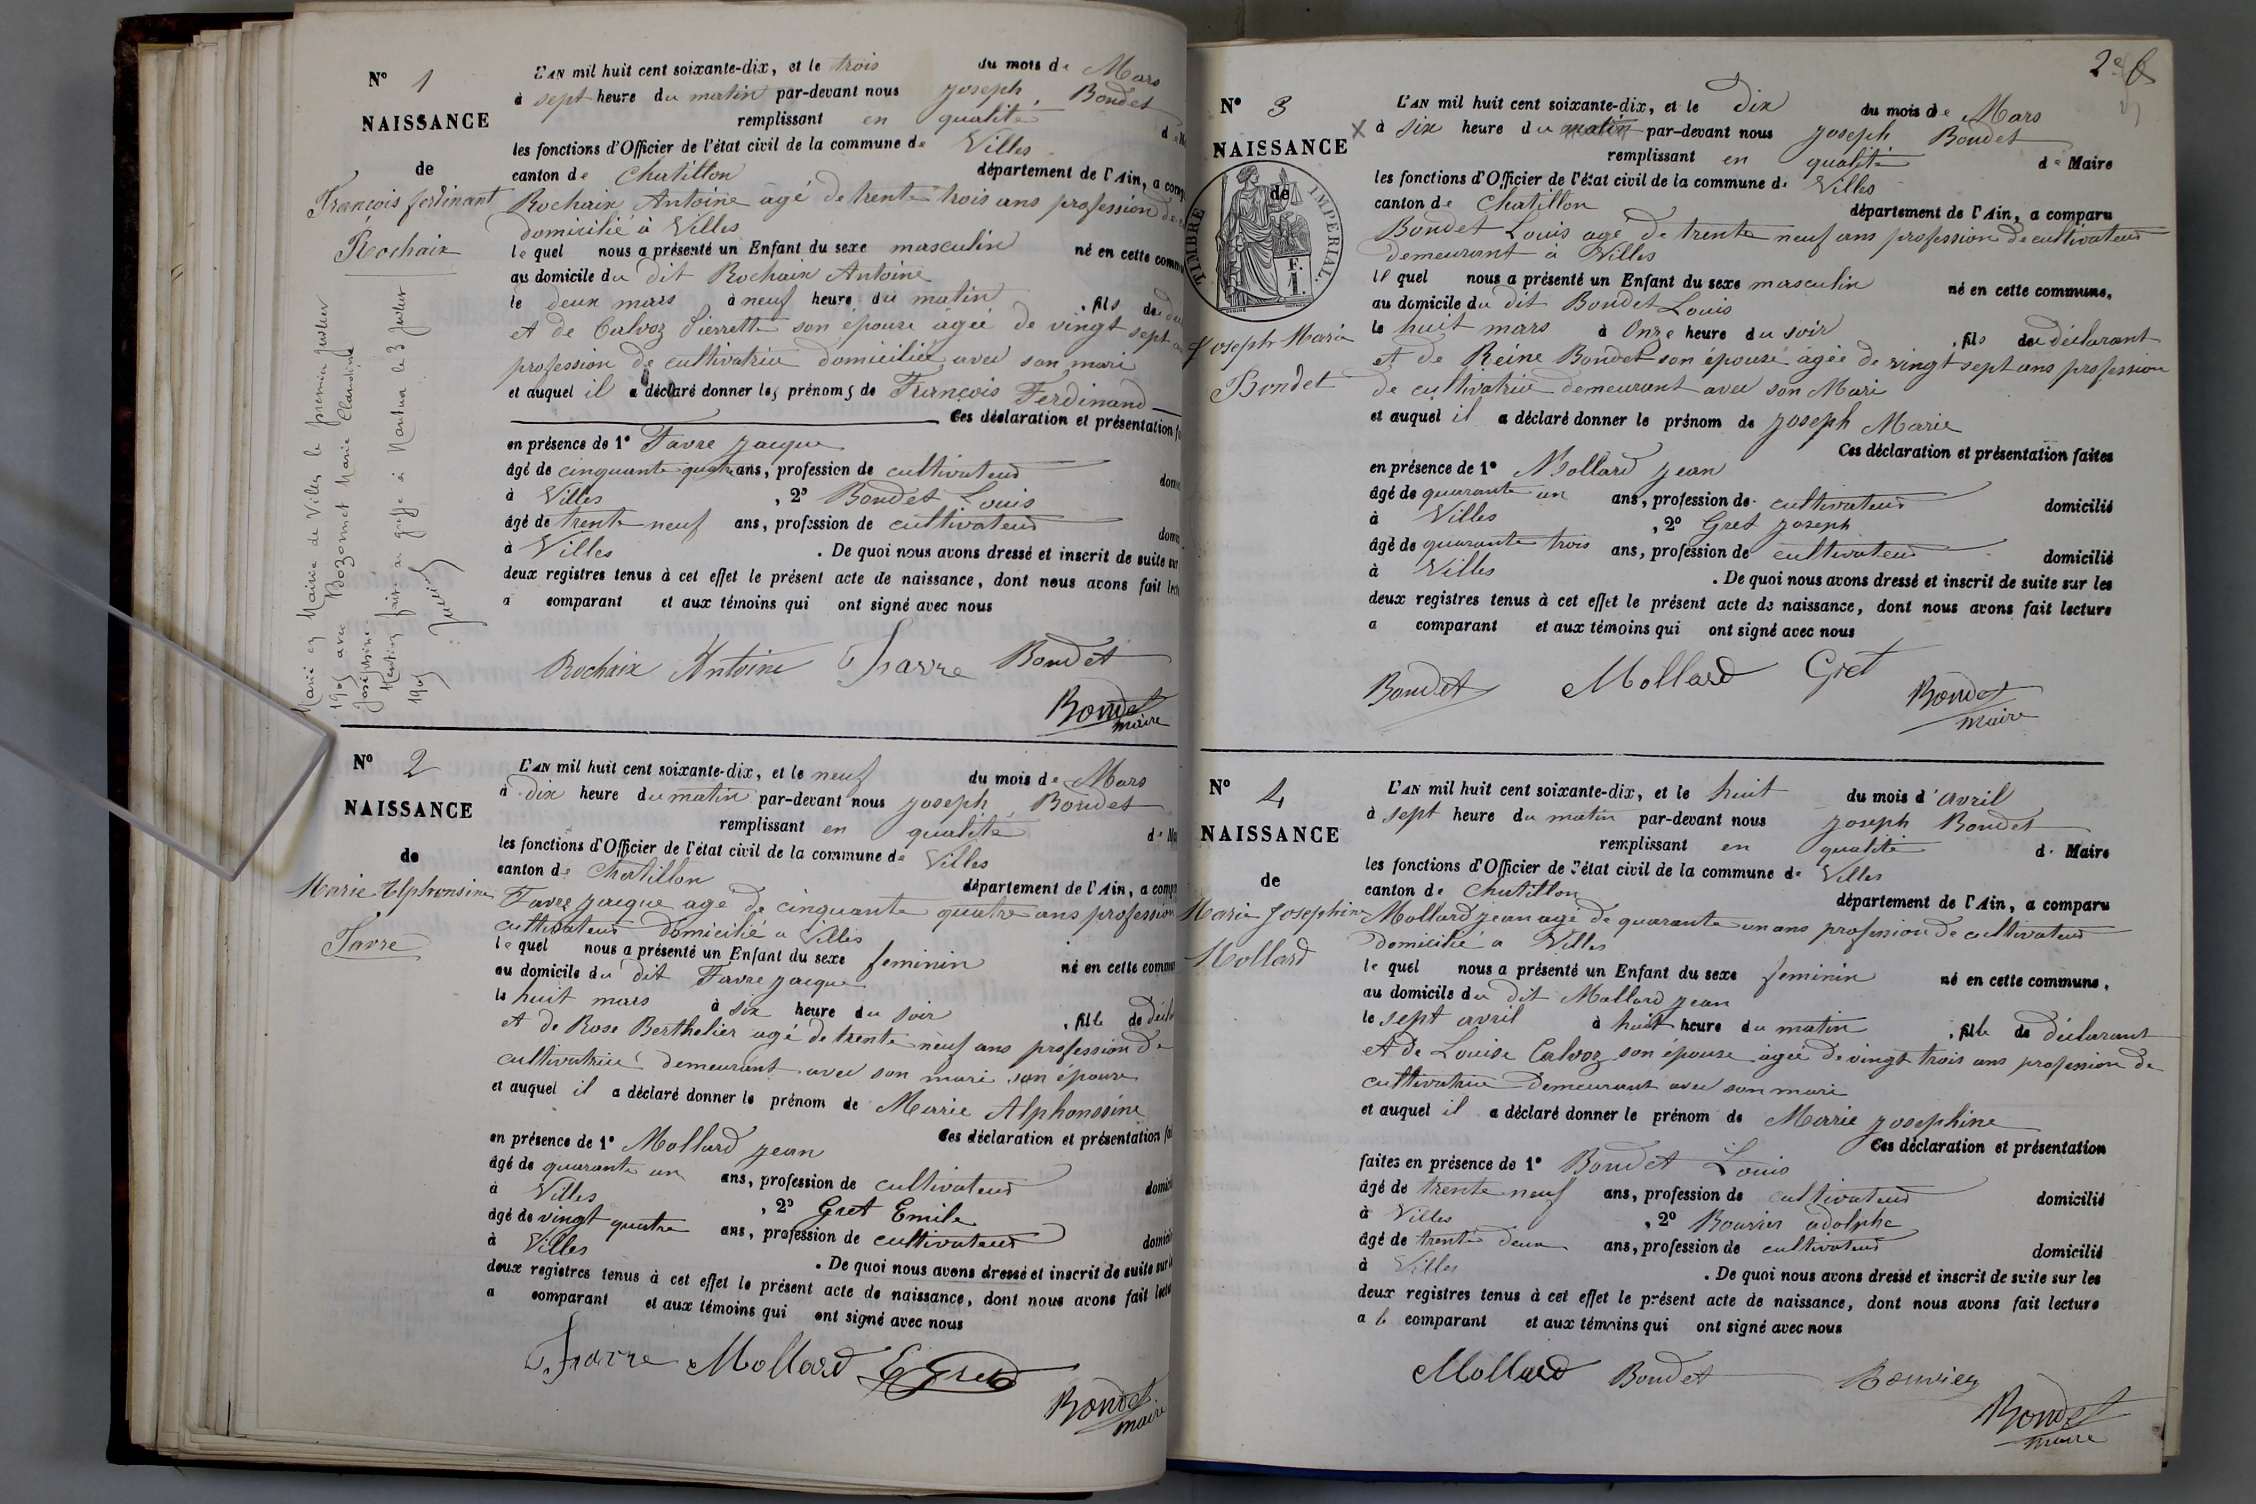 N° 1
NAISSANCE
de
François ferdinant
Rochaix
Marié en Mairie de Villes le premier juillet
1905 avec Bozonnet Marie Claudine
Joséphine
Mention faite au greffe à Nantua le 3 Juillet
1905
L'AN mil huit cent soixante-dix, et le trois du mois de Mars
à sept heure du matin par-devant nous joseph Bondet
remplissant en qualité de
les fonctions d'Officier de l'état civil de la commune de Villes
canton de Chatillon département de l'Ain, a comp
Rochaix Antoine agé de trente trois ans profession de
domicilié à Villes
le quel nous a présenté un Enfant du sexe masculin né en cette commu
au domicile du dit Rochaix Antoine
le deux mars à neuf heure du matin, fils de
et de Calvoz Pierrette son épouse âgée de vingt sept
profession de cultivatrice domiciliée avec son mari
et auquel il a déclaré donner les prénoms de François Ferdinand
Ces déclaration et présentation
en présence de 1° Favre jacque
âgé de cinquante quatre ans, profession de cultivateur
à Villes, 2° Bondet Louis
âgé de trente neuf ans, profession de cultivateur
à Villes. De quoi nous avons dressé et inscrit de suite sur
deux registres tenus à cet effet le présent acte de naissance, dont nous avons fait lectu
a comparant et aux témoins qui ont signé avec nous
Rochaix Antoine Favre Bondet
Bondet
maire
N° 2
NAISSANCE
de
Marie Alphonsine
Favre
L'AN mil huit cent soixante-dix, et le neuf du mois de Mars
à dix heure du matin par-devant nous joseph Bondet
remplissant en qualité de Ma
les fonctions d'Officier de l'état civil de la commune de Villes
canton de Chatillon département de l'Ain, a comp
Favre jacque age de cinquante quatre ans profession
cultivateur domicilié a Villes
le quel nous a présenté un Enfant du sexe feminin né en cette commu
au domicile du dit Favre jacque
le huit mars à six heure du soir, fille de décla
et de Rose Berthelier agé de trente neuf ans profession de
cultivatrice demeurant avec son mari son épouse
et auquel il a déclaré donner le prénom de Marie Alphonssine
Ces déclaration et présentation fai
en présence de 1° Mollard jean
âgé de quarante un ans, profession de cultivateur domici
à Villes, 2° Gret Emile
âgé de vingt quatre ans, profession de cultivateur domici
à Villes. De quoi nous avons dressé et inscrit de suite sur
deux registres tenus à cet effet le présent acte de naissance, dont nous avons fait lectu
a comparant et aux témoins qui ont signé avec nous
Favre Mollard E Gret
Bondet
maire
2e
N° 3
NAISSANCE
de
TIMBRE IMPERIAL
F.
1
Joseph Marie
Bondet
L'AN mil huit cent soixante-dix, et le Dix du mois de Mars
x à six heure du matin par-devant nous joseph Bondet
remplissant en qualité de Maire
les fonctions d'Officier de l'état civil de la commune de Villes
canton de Chatillon département de l'Ain, a comparu
Bondet Louis age de trente neuf ans profession de cultivateur
demeurant à Villes
le quel nous a présenté un Enfant du sexe masculin né en cette commune,
au domicile du dit Bondet Louis
le huit mars à Onze heure du soir, fils de déclarant
et de Reine Bondet son épouse agée de vingt sept ans profession
de cultivatrice demeurant avec son Mari
et auquel il a déclaré donner le prénom de joseph Marie
Ces déclaration et présentation faites
en présence de 1° Mollard jean
âgé de quarante un ans, profession de cultivateur domicilié
à Villes, 2° Gret joseph
âgé de quarante trois ans, profession de cultivateur domicilié
à Villes. De quoi nous avons dressé et inscrit de suite sur les
deux registres tenus à cet effet le présent acte de naissance, dont nous avons fait lecture
a comparant et aux témoins qui ont signé avec nous
Bondet Mollard Gret
Bondet
maire
N° 4
NAISSANCE
de
Marie Josephine
Mollard
L'AN mil huit cent soixante-dix, et le huit du mois d'avril
à sept heure du matin par-devant nous joseph Bondet
remplissant en qualité de Maire
les fonctions d'Officier de l'état civil de la commune de Villes
canton de Chatillon département de l'Ain, a comparu
Mollard jean age de quarante un ans profession de cultivateur
domicilié a Villes
le quel nous a présenté un Enfant du sexe feminin né en cette commune,
au domicile du dit Mollard jean
le sept avril à huit heure du matin, fille de déclarant
et de Louise Calvoz son épouse agée de vingt trois ans profession de
cultivatrice demeurant avec son mari
et auquel il a déclaré donner le prénom de Marie josephine
Ces déclaration et présentation
faites en présence de 1° Bondet Louis
âgé de trente neuf ans, profession de cultivateur domicilié
à Villes, 2° Bouvier adolphe
âgé de trente deux ans, profession de cultivateur domicilié
à Villes. De quoi nous avons dressé et inscrit de suite sur les
deux registres tenus à cet effet le présent acte de naissance, dont nous avons fait lecture
a le comparant et aux témoins qui ont signé avec nous
Mollard Bondet Bouvier
Bondet
maire